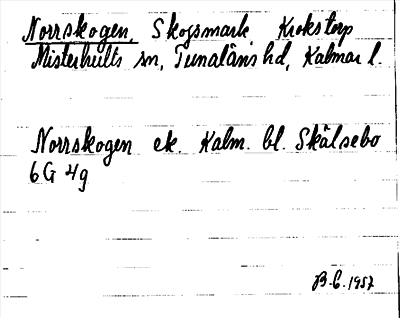 Norrskogen, Skogsmark, Krokstorp
Misterhults sn, Tunaläns hd, Kalmar l.
Norrskogen ek. Kalm. bl. Skälsebo
6G 4g
B.C. 1957